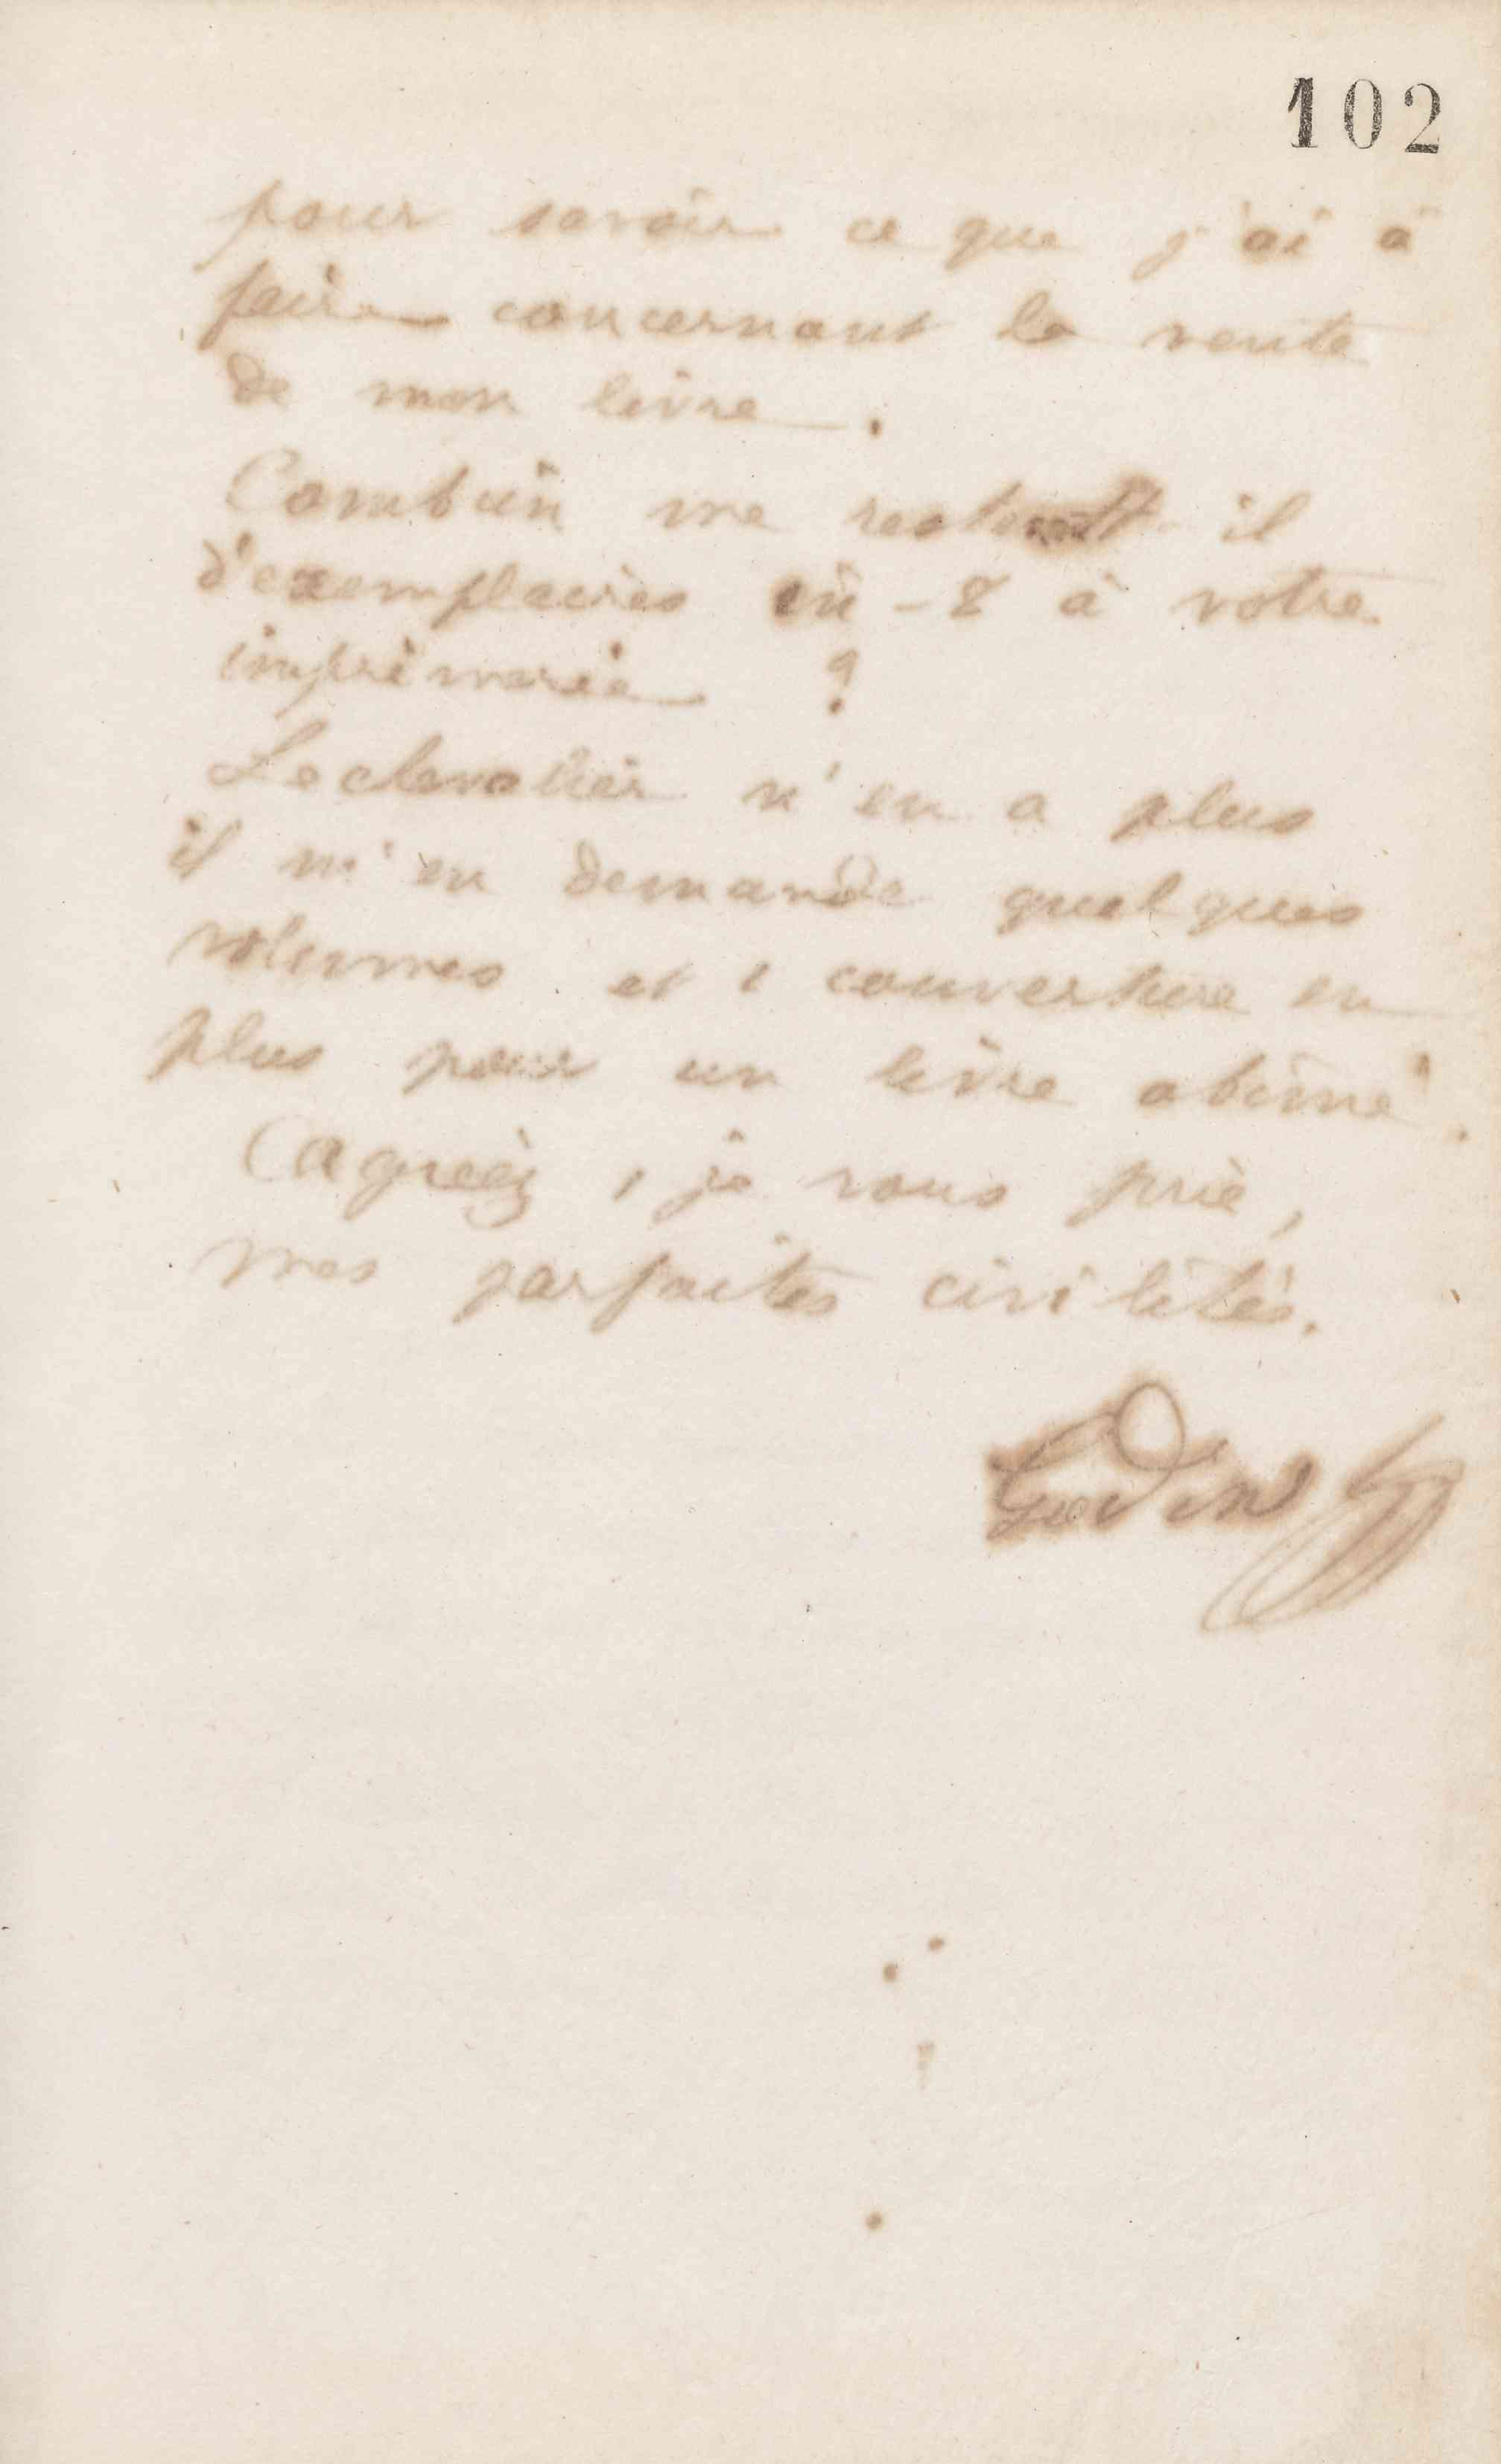 102
pour savoir ce que j'ai à
faire concernant la vente
de mon livre.
Combien me reste-t-il
d'exemplaires in-8 à votre
imprimerie ?
Lechevalier n'en a plus
il m'en demande quelques
volumes et 1 couverture en
plus pour un livre abimé.
Agréez, je vous prie,
mes parfaites civilités.
Godin